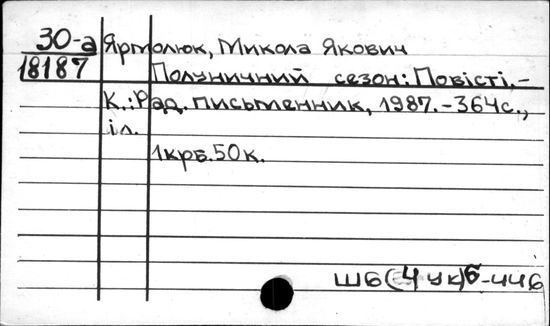 30-а Ярмолюк, Микола Якович
18187 Полуничний сезон: Повісті.-
К.: Рад. письменник, 1987.-364с.,
іл.
1крб.50к.
Ш6(4Ук)6-446